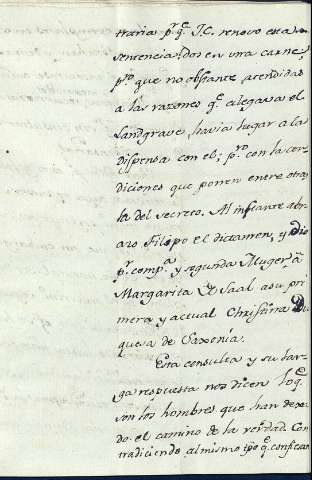 traria p.r q.e J.C. renovo esta
sentencia: dos en una carne,
p.ro que no obstante atendidas
a las razones q.e alegava el
Landgrave, havia lugar a la
dispensa con el; p.ro con las con
diciones que ponen entre otras
la del secreto. Al instante abra
zo Filipo el dictamen, y dio
p.r comp.a y segunda Muger à
Margarita de Saal a su pri
mera y actual Christina Du
quesa de Saxonia.
Esta consulta y su lar
ga respuesta nos dicen lo q.e
son los hombres que han dexa
do el camino de la verdad. Con
tradiciendo al mismo tpo q.e confiesan